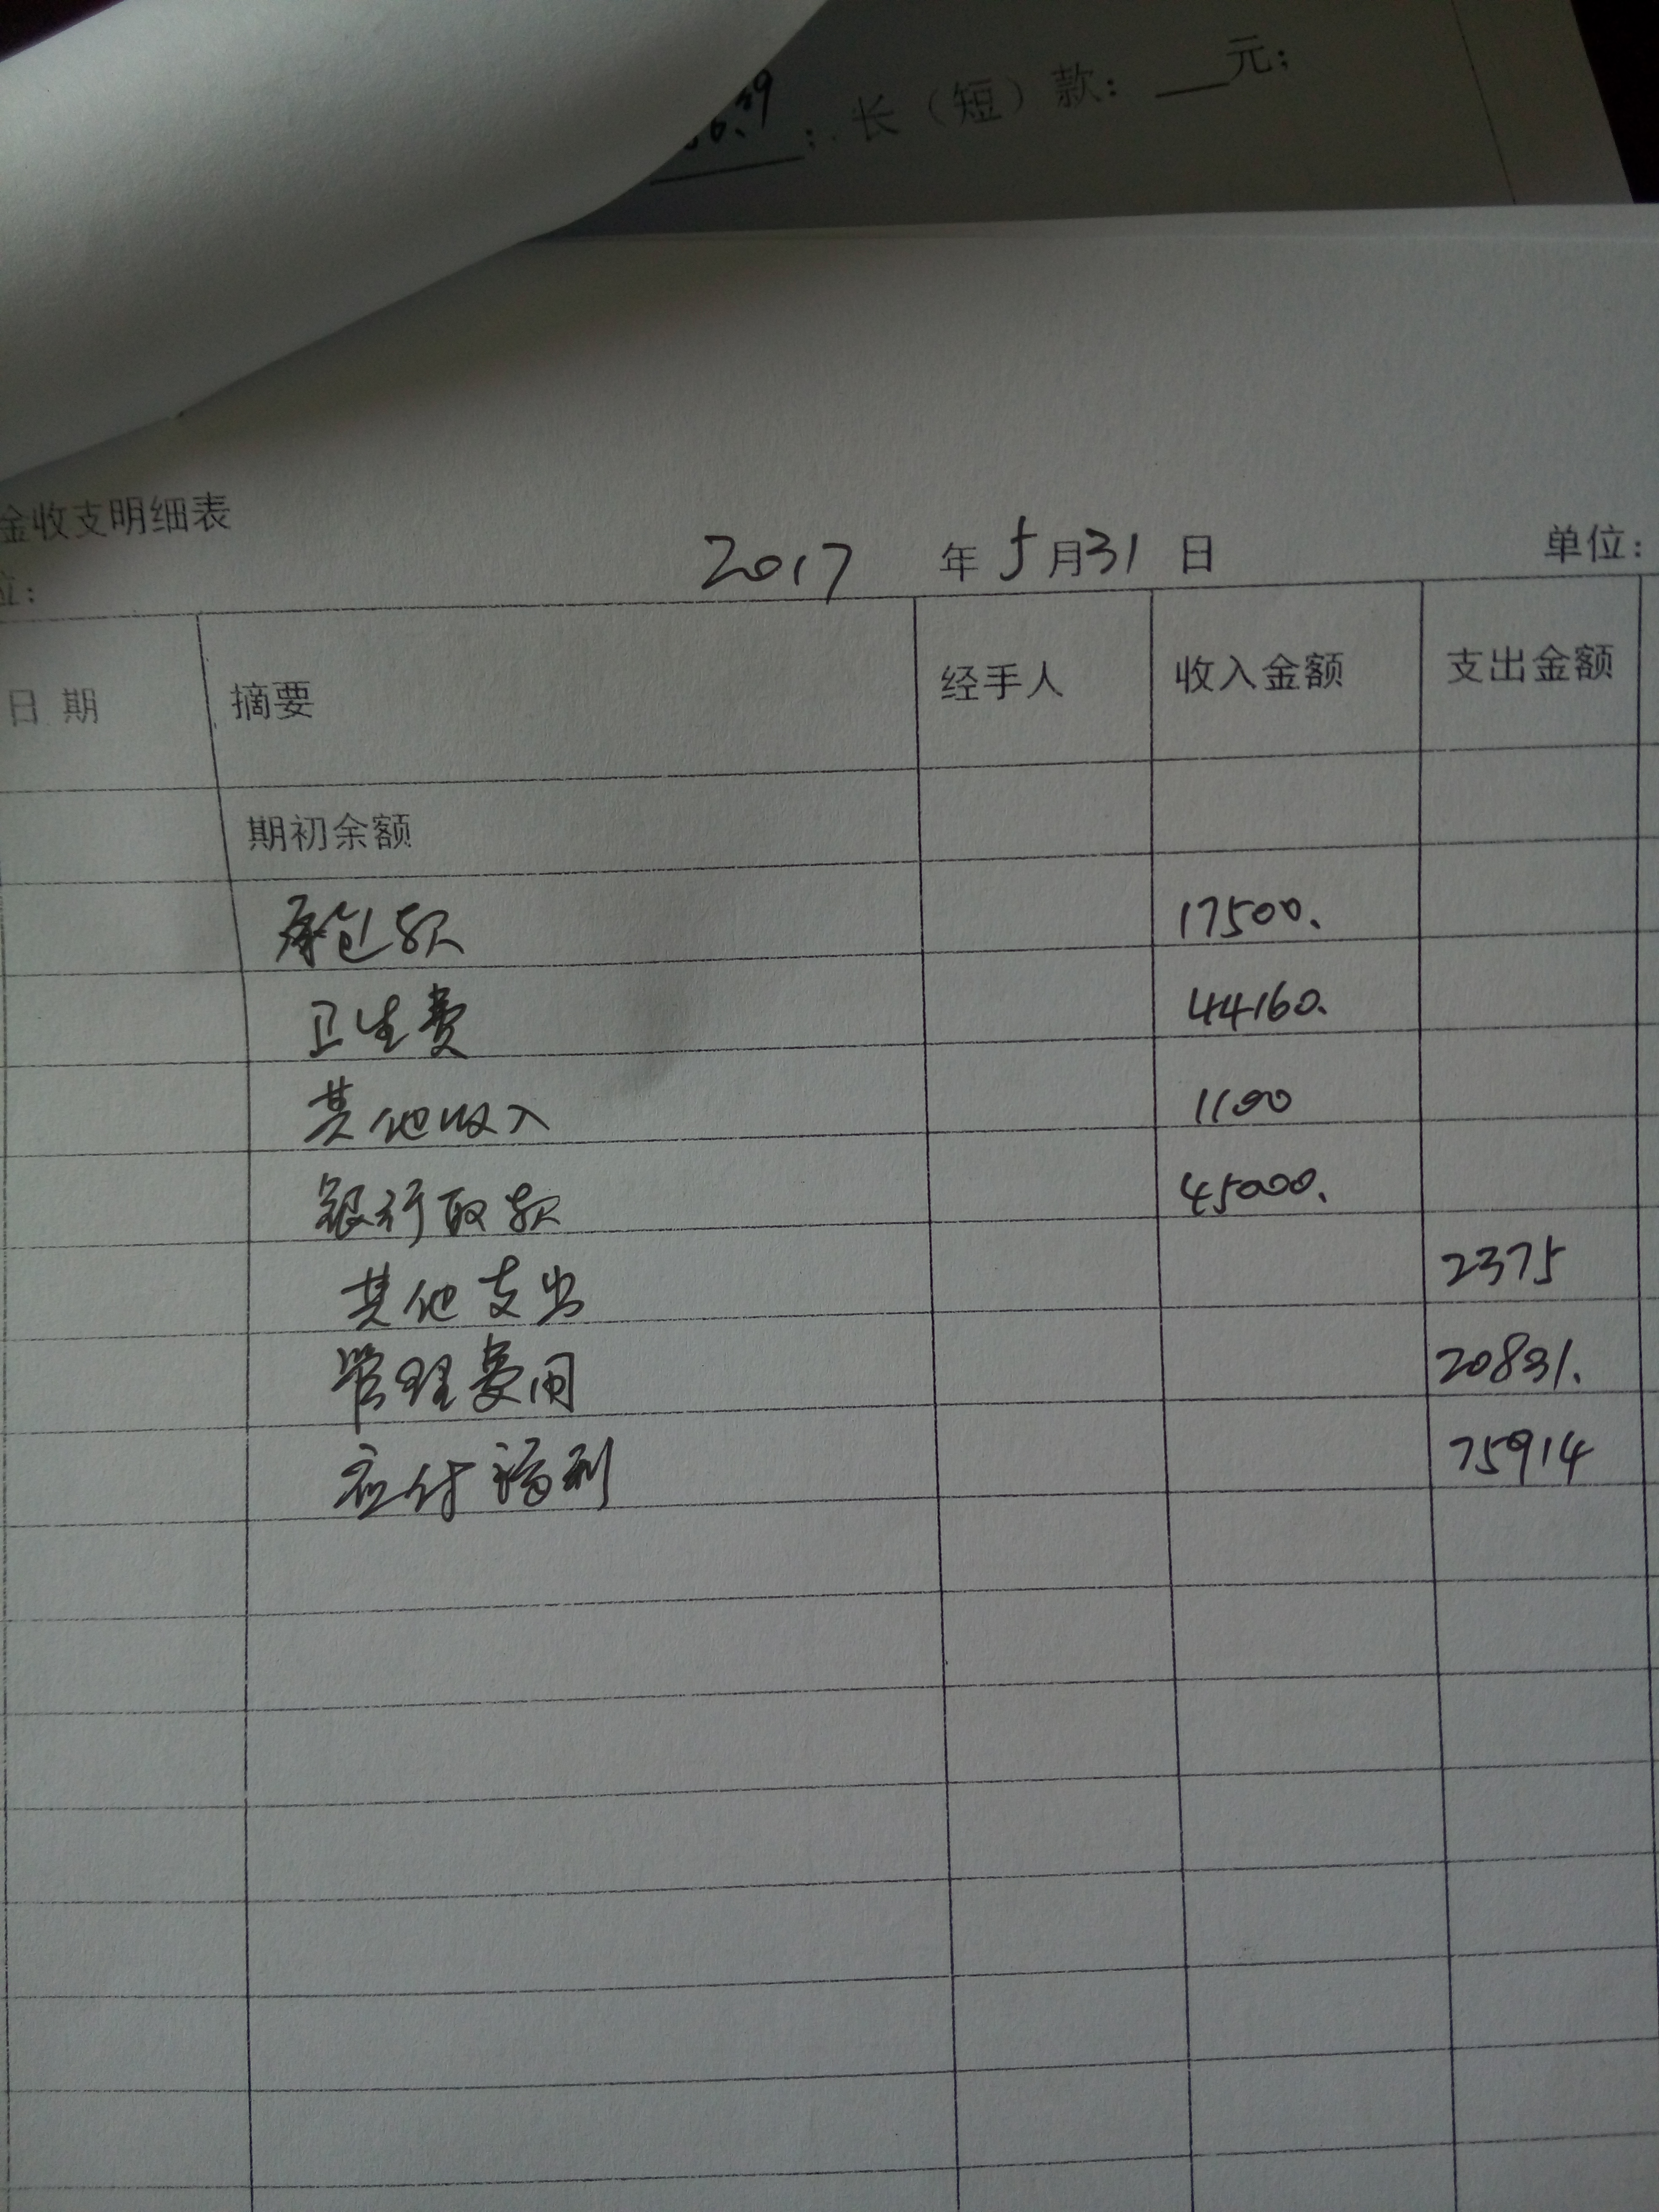 6.39 ; 长（短）款： 元;
金收支明细表
位： 2017 年 5月31 日 单位：
日 期 摘要 经手人 收入金额 支出金额
期初余额
承包款 17500.
卫生费 44160.
其他收入 1100
银行取款 45000.
其他支出 2375
管理费用 20831.
应付福利 75914